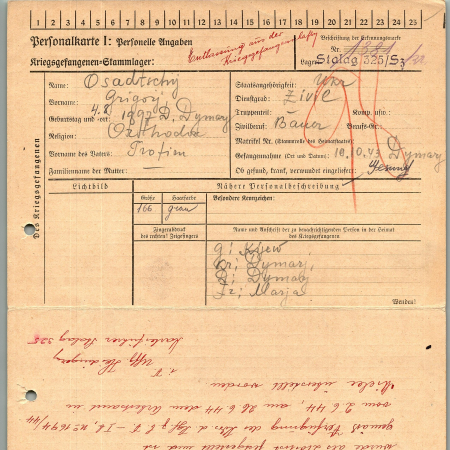 1 2 3 4 5 6 7 8 9 10 11 12 13 14 15 16 17 18 19 20 21 22 23 24 25
Personalkarte I: Personelle Angaben
Kriegsgefangenen-Stammlager:
Entlassung aus der
Kriegsgefangenschaft
Beschriftung der Erkennungsmarke
Nr.
Lager: Stalag 325/Sz
Des Kriegsgefangenen
Name: Osadtschy
Vorname: Grigorj
Geburtstag und -ort: 4.2.1907 D. Dymarj
Religion: Orthodox
Vorname des Vaters: Trofim
Familienname der Mutter:
Staatsangehörigkeit: Ukr
Dienstgrad: Zivil
Truppenteil: Komp. usw.:
Zivilberuf: Bauer Berufs-Gr.:
Matrikel Nr. (Stammrolle des Heimatstaates):
Gefangennahme (Ort und Datum): 10.10.43 Dymarj
Ob gesund, krank, verwundet eingeliefert:
Lichtbild
Nähere Personalbeschreibung
Größe
Haarfarbe
Besondere Kennzeichen:
166
grau
Fingerabdruck
des rechten! Zeigefingers
Name und Anschrift der zu benachrichtigenden Person in der Heimat
des Kriegsgefangenen
G: Kiew
Kr: Dymarj,
D: Dymarj
Fr: Marja
Wenden!
wurde als
gemäß Verfügung des Kdr. d. Kgf. № 1694/44
vom 2.6.44, am 26.6.44 dem
überstellt worden.
i. V.
Uffz.
Karteiführer Stalag 325